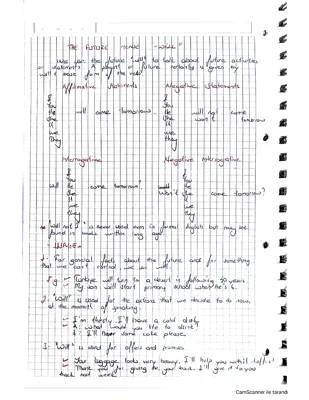 THE FUTURE TENSE "WILL"
We use the future "will" to talk about future activities
or statements. A degree of future certainty is given by
will + base form of the verb.
Affirmative Statements Negative Statements
I
You
He
She
It
We
They
will come tomorrow.
I
You
He
She
It
We
They
will not come tomorrow
won't
Interrogative Negative Interrogative
Will
I
You
He
She
It
We
They
come tomorrow?
Won't
I
You
He
She
It
We
They
come tomorrow?
"Will not" is never used even in formal English but may be
found in
USAGE
1- For general facts about the future and for something
that we can't control we use will
Türkiye will turn in a desert in following 50 years
My son will start primary school when he's 6.
2- "Will" is used for the actions that we decide to do now,
at the moment of speaking.
I'm thirsty. I'll have a cold drink
A: What would you like to drink?
B: I'll have some cake please.
3- "Will" is used for offers and promises
Your luggage looks very heavy. I'll help you with it
Thank you for giving to your book. I'll give it to you
back next week.
CamScanner ile tarandı